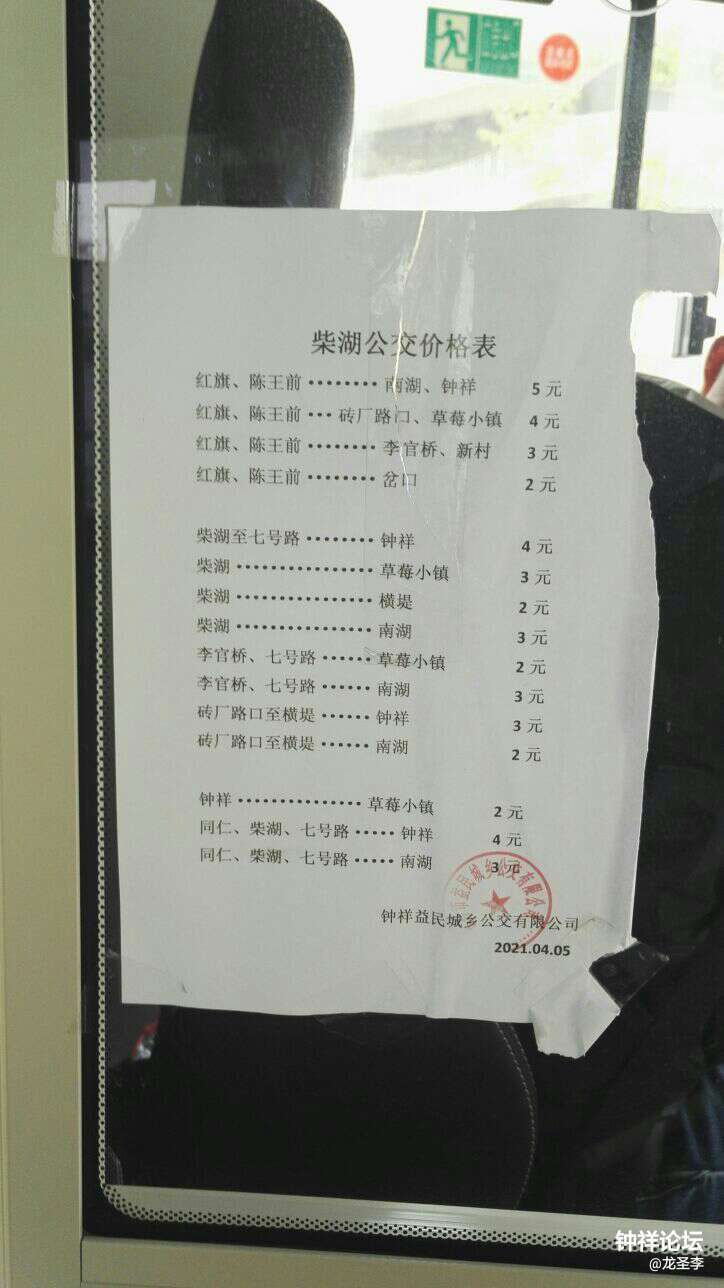 柴湖公交价格表
红旗、陈王前········南湖、钟祥 5 元
红旗、陈王前···砖厂路口、草莓小镇 4 元
红旗、陈王前········李官桥、新村 3 元
红旗、陈王前········岔口 2 元
柴湖至七号路········钟祥 4 元
柴湖················草莓小镇 3 元
柴湖················横堤 2 元
柴湖················南湖 3 元
李官桥、七号路······草莓小镇 2 元
李官桥、七号路······南湖 3 元
砖厂路口至横堤······钟祥 3 元
砖厂路口至横堤······南湖 2 元
钟祥···············草莓小镇 2 元
同仁、柴湖、七号路·····钟祥 4 元
同仁、柴湖、七号路·····南湖 3 元
益民城乡公交有限公
钟祥益民城乡公交有限公司
2021.04.05
钟祥论坛
@龙圣李